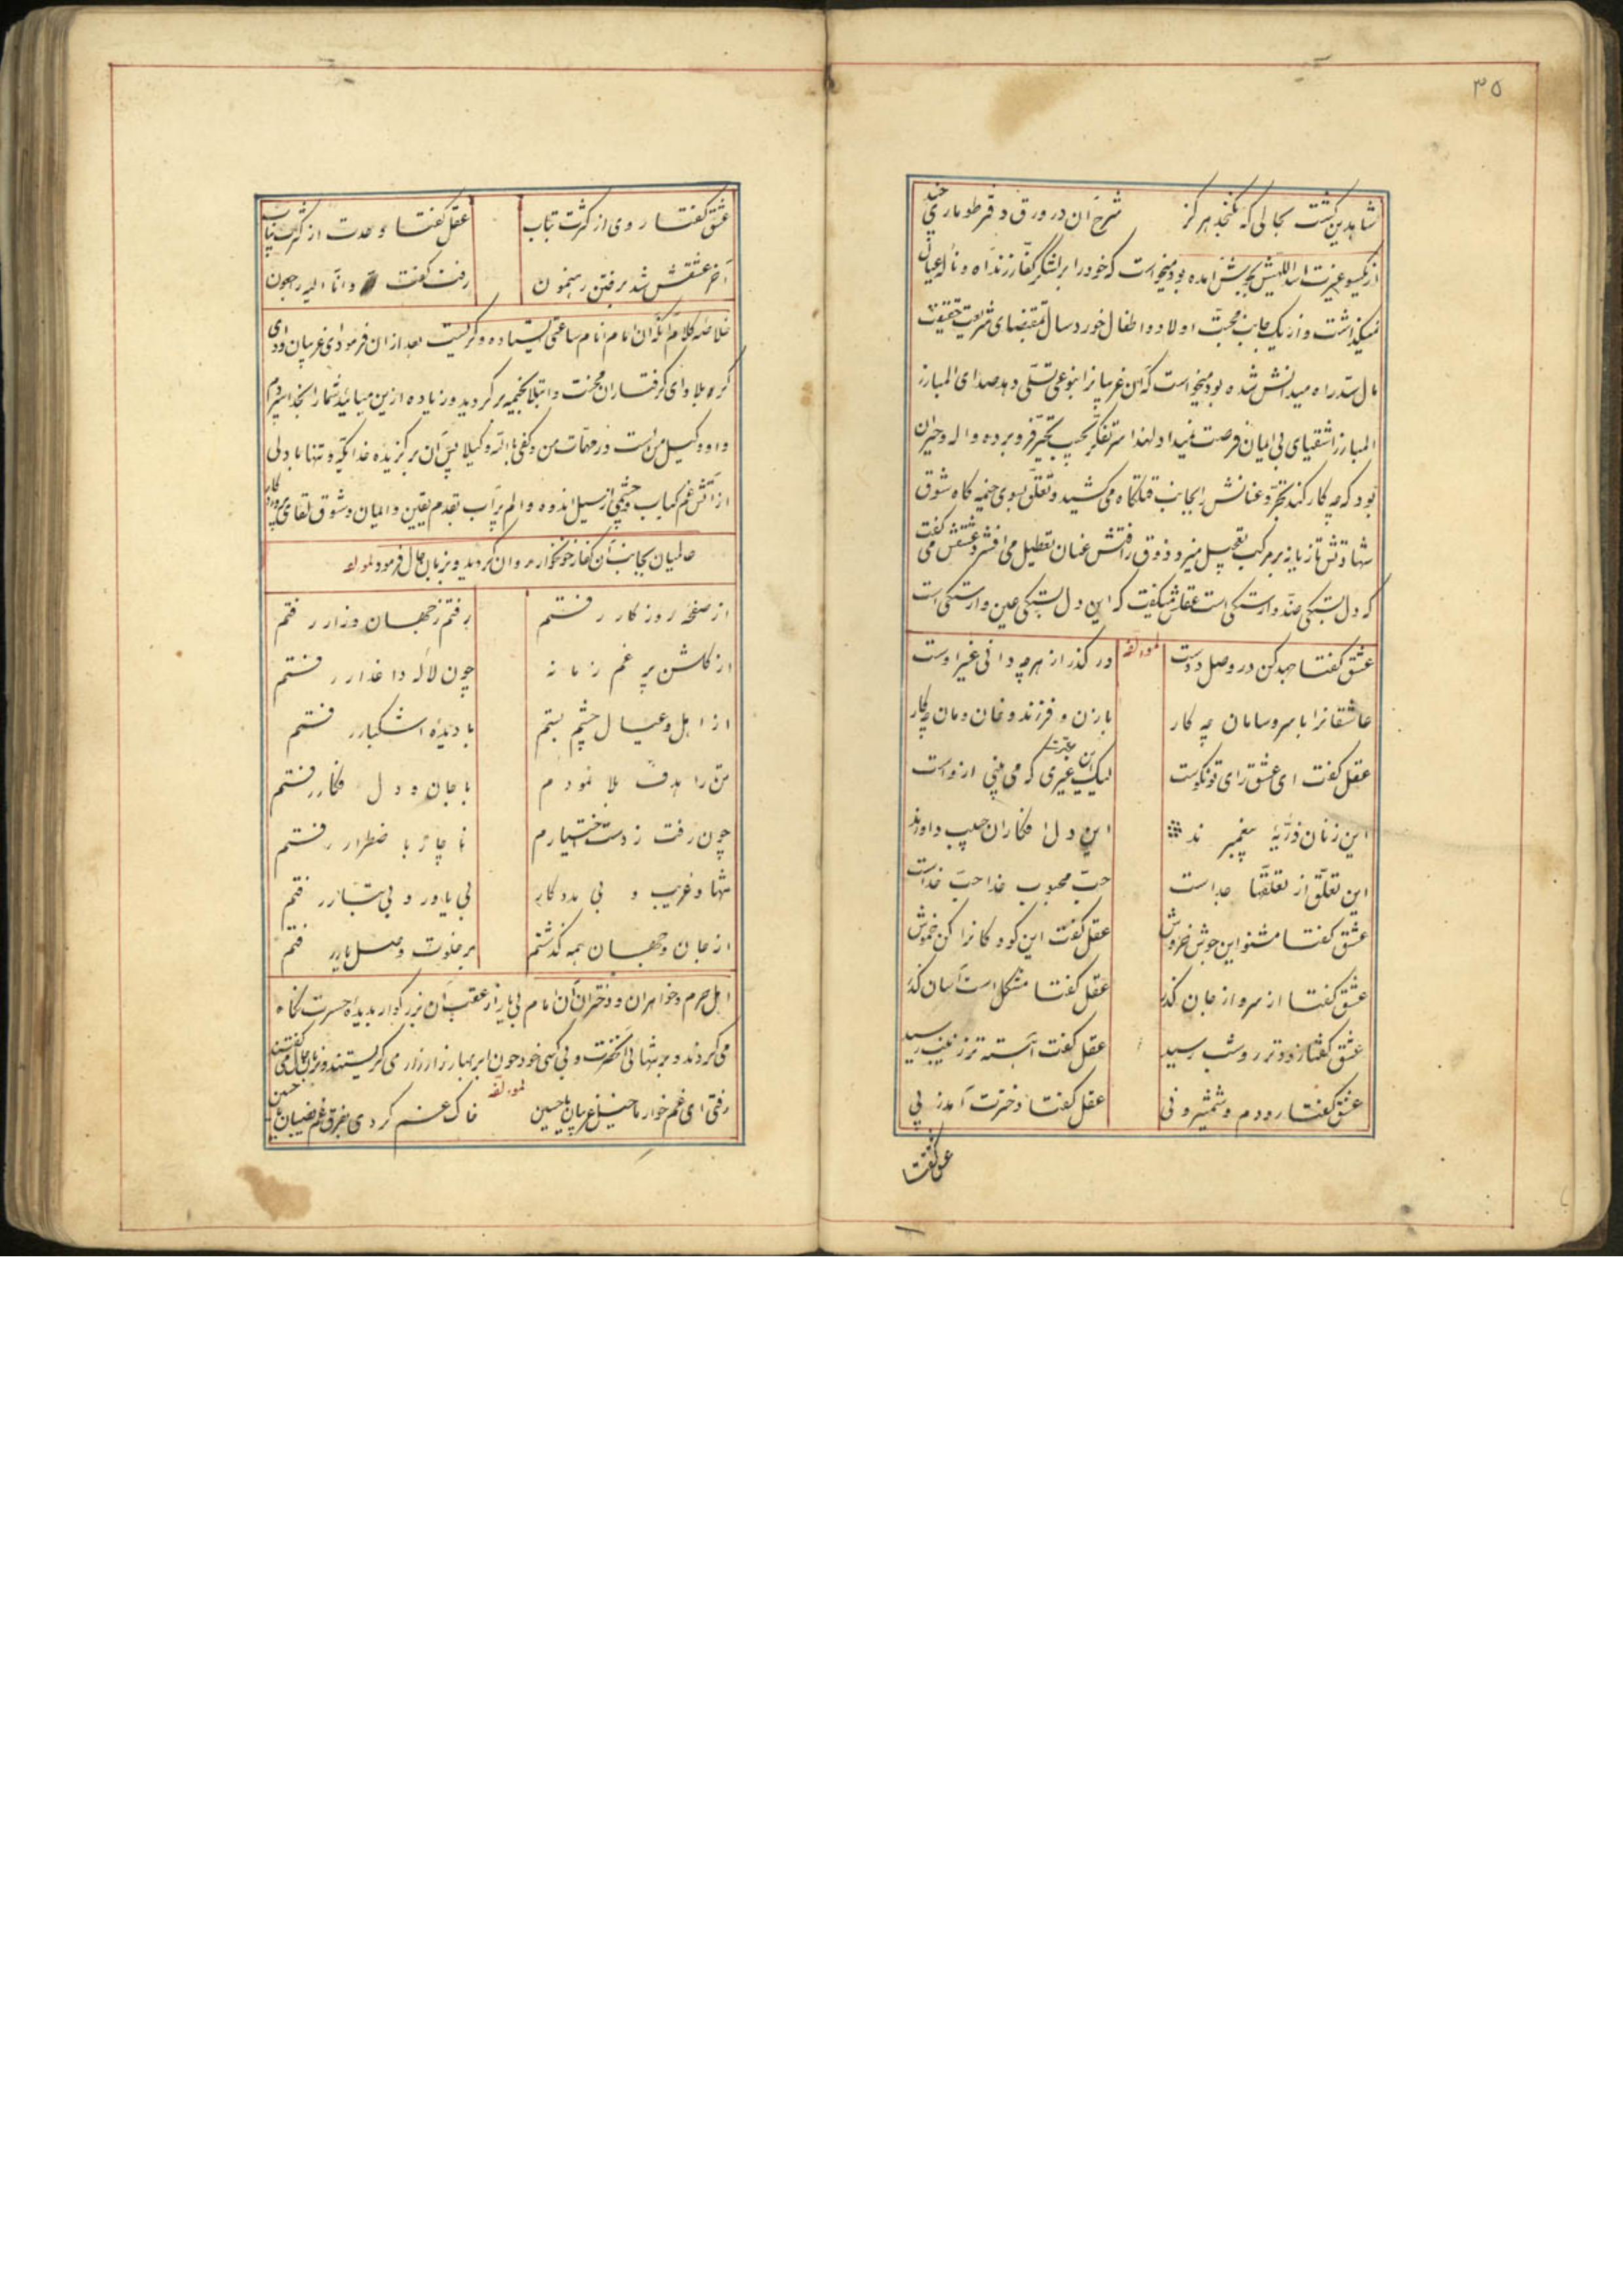 ۳۵
شاهدین گشت بحالی که نگنجد هرگز شرح آن در ورق و دفتر طوماری چند
از یکسو غیرت اسداللهیش بجوش آمده بود میخواست که خود را بر لشکر کفار زند آه و ناله عیالش
نمیگذاشت و از یکجانب محبت اولاد و اطفال خوردسال بمقتضای شریعت حقیقت
مآل سد راه میدانش شده بود میخواست که آن غریبانرا بنوعی تسلی دهد صدای المبارز
المبارز اشقیای بی ایمان فرصت نمیداد لهذا سر تفکر بجیب تحیر فرو برده واله و حیران
بود که چه کار کند تجرد عنانش را بجانب قتلگاه می کشید و تعلق بسوی خیمه گاه شوق
شهادتش تازیانه بر مرکب تعجیل میزد و ذوق رفتنش عنان تعطیل می افشرد عشقش می گفت
که دل بستگی ضد وارستگی است عقلش میگفت که این دل بستگی عین وارستگی است
عشق گفتا جهد کن در وصل دوست لمولفه در گذر از هر چه دانی غیر اوست
عاشقانرا با سر و سامان چه کار با زن و فرزند و خان و مان چه کار
عقل گفت ای عشق رای تو نکوست لیک این غیری که می بینی ازوست
این زنان ذریهٔ پیغمبرند این دل افکاران حبیب داورند
این تعلق از تعلقها جداست حب محبوب خدا حب خداست
عشق گفتا مشنو این جوش و خروش عقل گفت این کودکانرا کن خموش
عشق گفتا از سر و از جان گذر عقل گفتا مشکل است آسان گذر
عشق گفتا زودتر رو شب رسید عقل گفت آهسته تر زینب رسید
عشق گفتا رو دم و شمشیر و نی عقل گفتا دخترت آمد ز پی
عشق گفتا
عشق گفتا روی از کثرت بتاب عقل گفتا وحدت از کثرت بیاب
آخر عشقش شد برفتن رهنمون رفت گفت و انا الیه راجعون
خلاصه کلام آنکه آن امام انام ساعتی ایستاده و گریست بعد از آن فرمود ای غریبان وادی
کربلا و ای گرفتاران محنت و ابتلا بخیمه برگردید و زیاده ازین میائید شما را بخدا سپردم
و او وکیل من است در مهمات من و کفی بالله وکیلا پس آن برگزیده خدا یکه و تنها با دلی
از آتش غم کباب و چشمی از سیل اندوه و الم پر آب بقدم یقین و ایمان و شوق لقای پروردگار
عالمیان بجانب آن کفار خونخوار روان گردید و بزبان حال فرمود لمولفه
از صفحهٔ روزگار رفتم رفتم ز جهان و زار رفتم
از گلشن پر غم زمانه چون لاله داغدار رفتم
از اهل و عیال چشم بستم با دیدهٔ اشکبار رفتم
تن را هدف بلا نمودم با جان و دل فکار رفتم
چون رفت ز دست اختیارم ناچار با ضطرار رفتم
تنها و غریب و بی مددکار بی یاور و بی تبار رفتم
از جان و جهان همه گذشتم بر خلوت وصل یار رفتم
اهل حرم و خواهران و دختران آن امام بی یار از عقب آن بزرگوار بدیده حسرت نگاه
می کردند و بر تنهائی آنحضرت و بی کسی خود چون ابر بهار زار زار می گریستند و بزبان حال می گفتند
رفتی ای غم خوار ما خیل غریبان یا حسین لمولفه خاک غم کردی بفرق غم نصیبان یا حسین